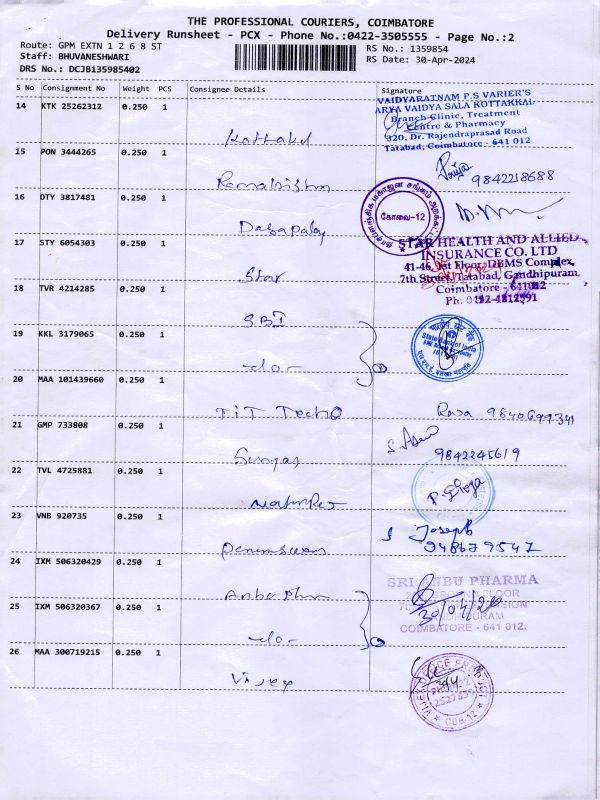 THE PROFESSIONAL COURIERS, COIMBATORE
Delivery Runsheet - PCX - Phone No.:0422-3505555 - Page No.:2
Route: GPM EXTN 1 2 6 8 ST
RS No.: 1359854
Staff: BHUVANESHWARI
RS Date: 30-Apr-2024
DRS No.: DCJB135985402
S No Consignment No Weight PCS Consignee Details Signature
14 KTK 25262312 0.250 1 Kottakal
VAIDYARATNAM P.S VARIER'S
ARYA VAIDYA SALA KOTTAKKAL
Branch Clinic, Treatment
Centre & Pharmacy
320, Dr. Rajendraprasad Road
Tatabad, Coimbatore - 641 012
15 PON 3444265 0.250 1 Ramakrishna 9842218688
16 OTY 3817481 0.250 1
கோவை-12
17 STY 6054303 0.250 1 Star
STAR HEALTH AND ALLIED
INSURANCE CO. LTD
41-46, 1st Floor, DBMS Complex,
7th Street, Tatabad, Gandhipuram,
Coimbatore - 641012
Ph: 0422-4212591
18 TVR 4214285 0.250 1 SBI
State Bank of India
19 KKL 3179065 0.250 1 -do-
20 MAA 101439660 0.250 1 TIT Techo
21 GMP 733808 0.250 1 9842245619
22 TVL 4725881 0.250 1
23 VNB 920735 0.250 1 Joseph
24 IXM 506320429 0.250 1 Anbu Phr
SRI ANBU PHARMA
FLOOR
COIMBATORE - 641 012.
25 IXM 506320367 0.250 1 -do-
26 MAA 300719215 0.250 1 Vijay
CBE-12